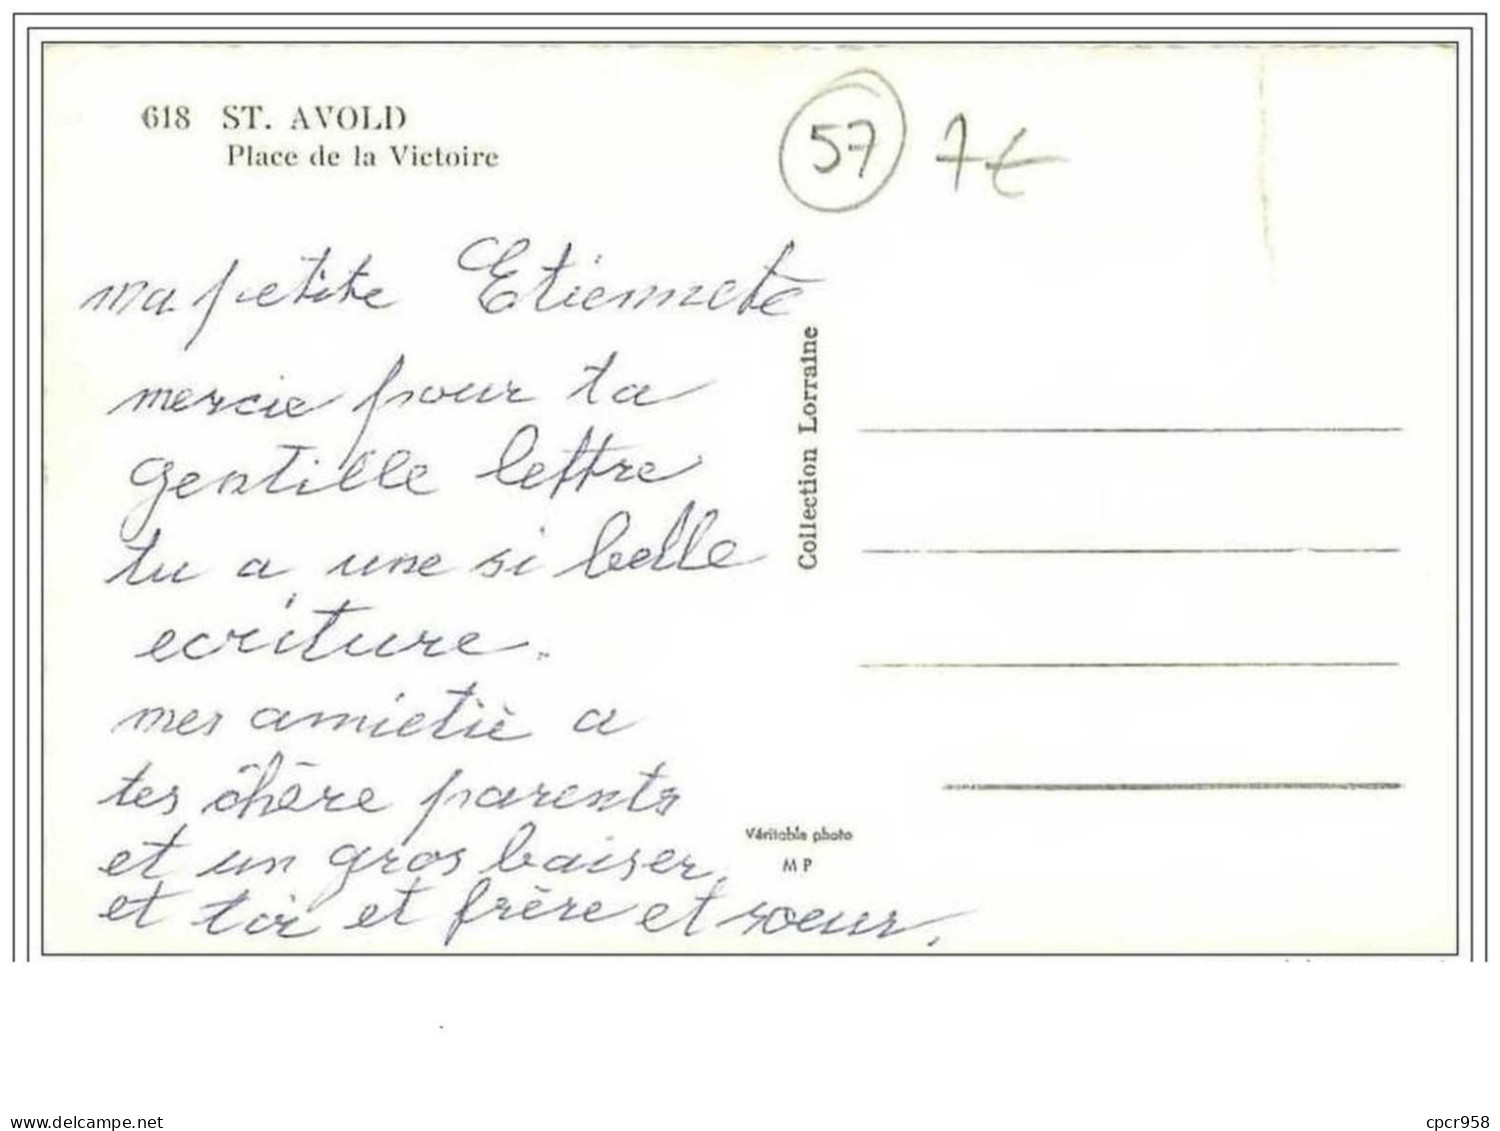 618 ST. AVOLD
Place de la Victoire
57 7€
ma petite Etiennete
mercie pour ta
gentille lettre
tu a une si belle
ecriture.
mes amietiè a
tes chère parents
et un gros baiser
et toi et frère et soeur.
Collection Lorraine
Véritable photo
MP
delcampe.net
cpcr958